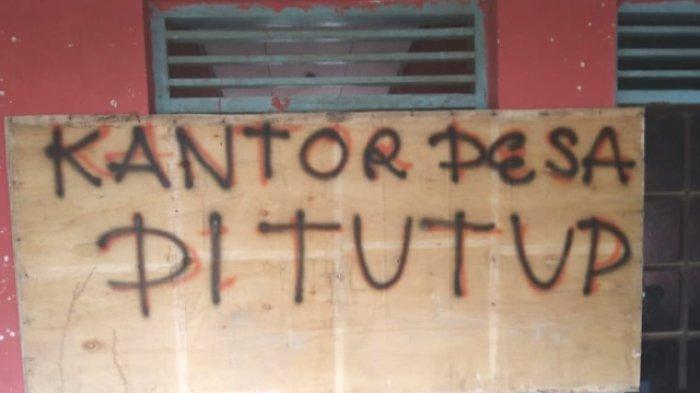 KANTOR DESA
DI TUTUP